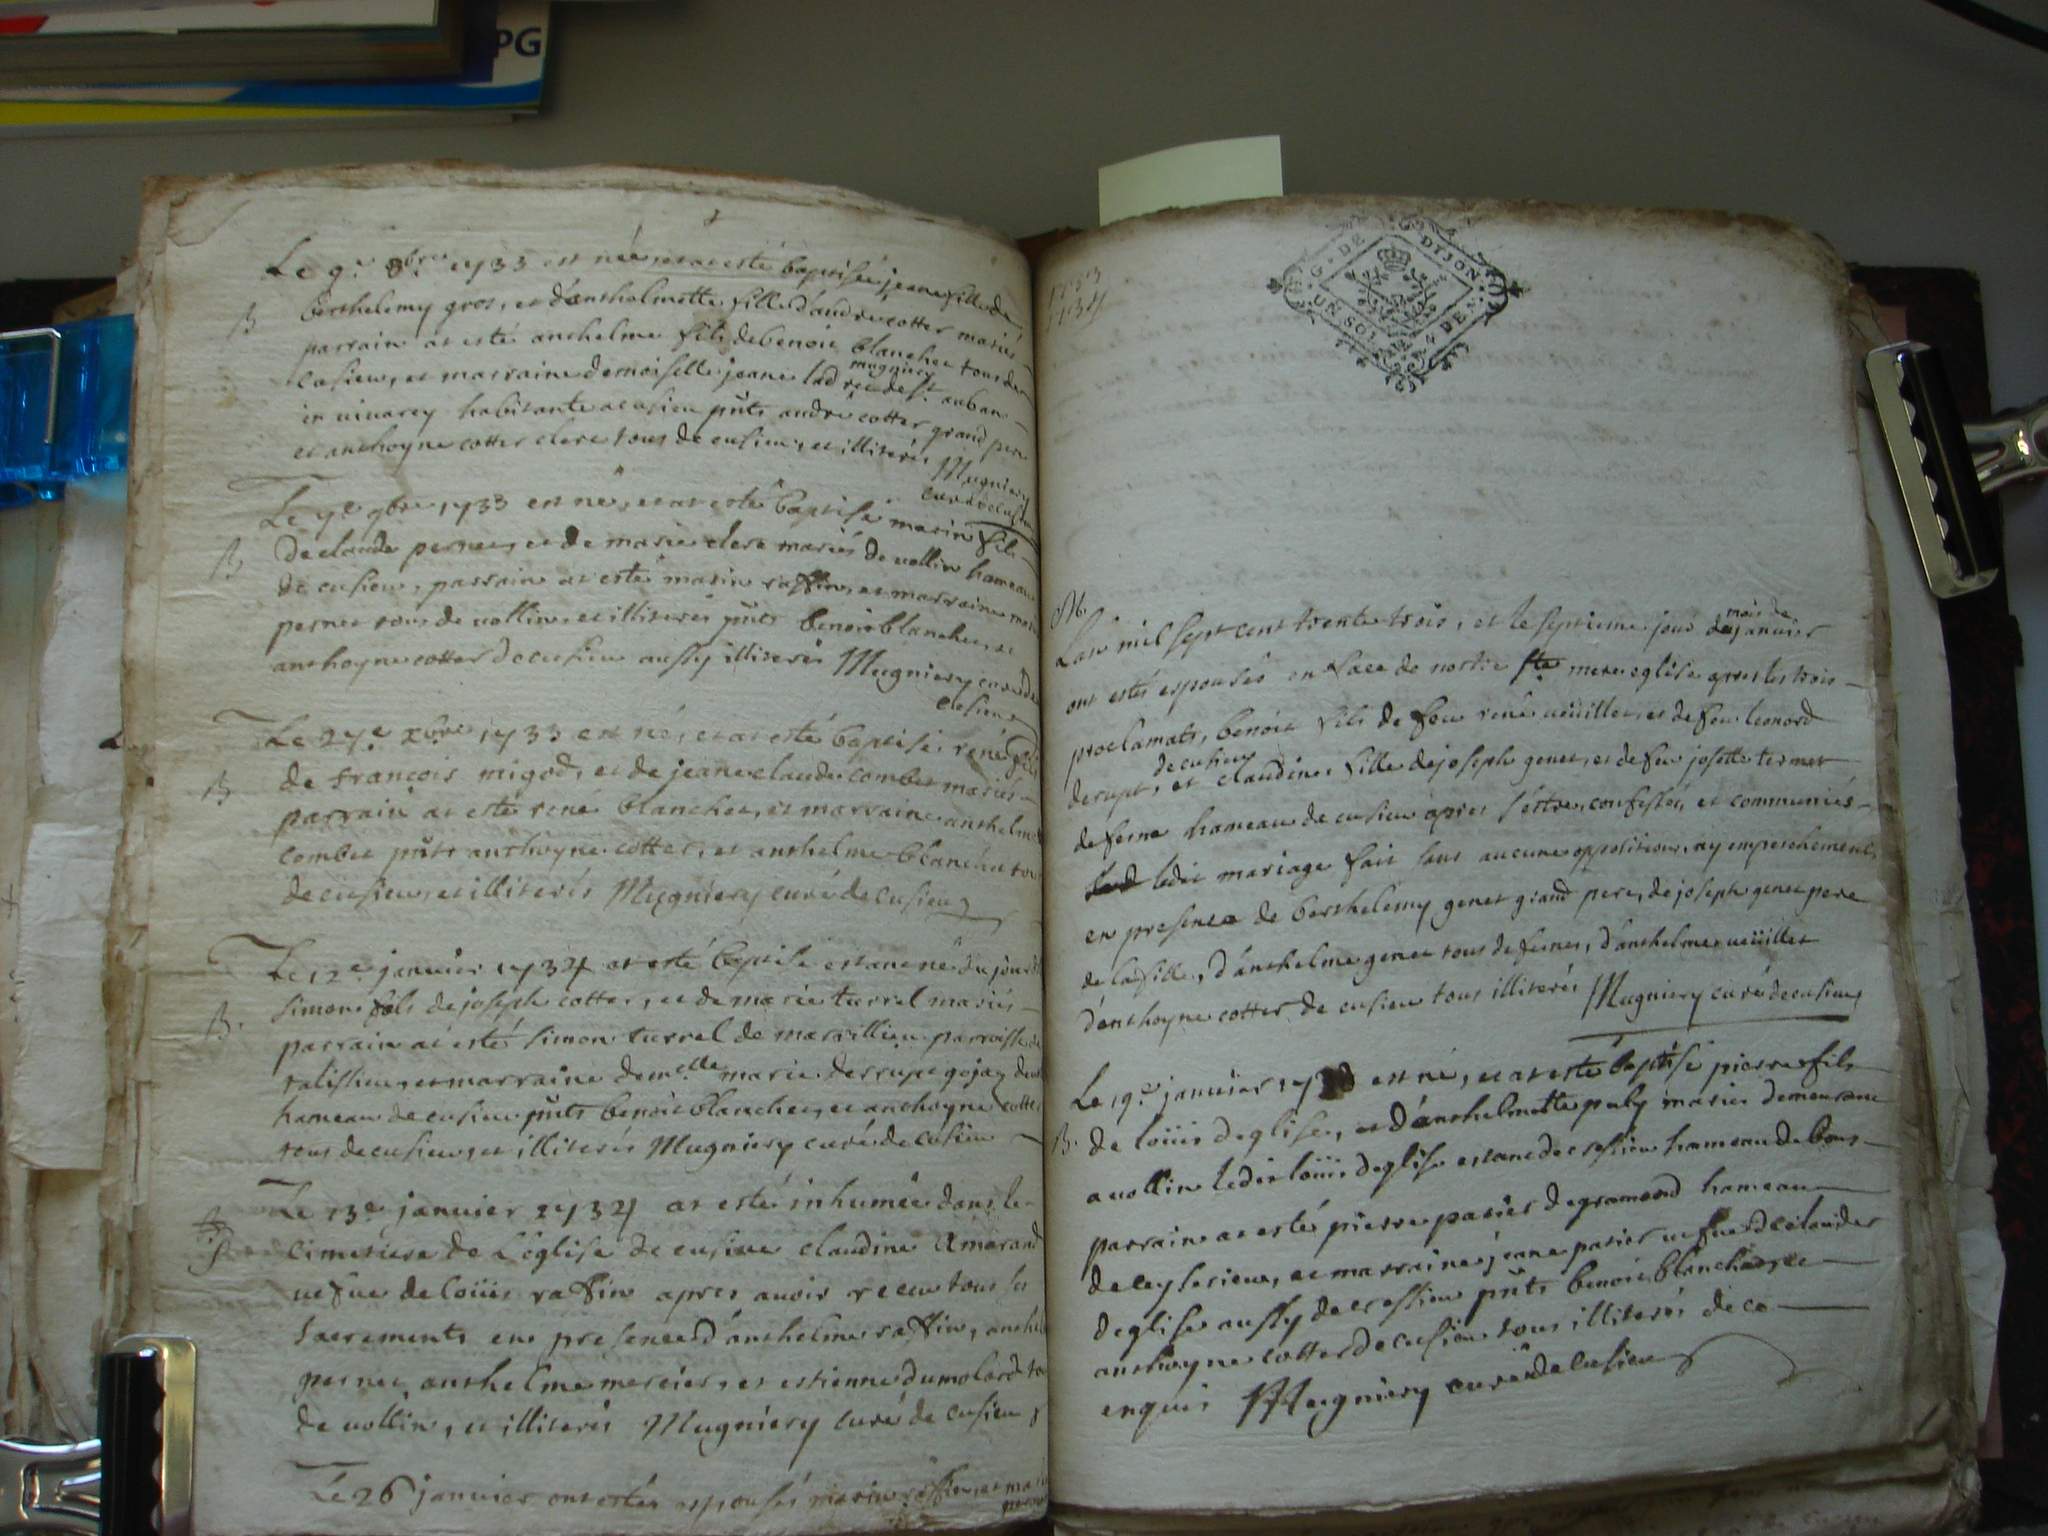 PG
Le 9e 8bre 1733 est née, et at esté baptisée jeane fille de
B berthelemy gros, et d'anthelmette fille d'andré cotter mariés
parrain at esté anthelme fils de benoit blanchet tous de
Cusieu, et marraine demoiselle jeane
mugniery
in vivarey habitante a cusieu pnts andré cotter grand pere
et anthoyne cotter clerc tous de cusieu, et illiterés
Mugniery
curé de cusieu
Le 9bre 1733 est né, et at esté baptisé marin fils
B de claude pernet, et de marie clerc mariés de vollin hameau
de cusieu, parrain at esté marin raffin, et marraine
pernet tous de vollin, et illiterés pnts benoit blanchet, et
anthoyne cotter de cusieu aussy illiterés Mugniery curé de
Cusieu
Le 27e xbre 1733 est né, et at esté baptisé rené fils
B de françois migod, et de jeane claude combet mariés
parrain at esté rené blanchet, et marraine anthelme
combet pnts anthoyne cotter, et anthelme blanchet tous
de cusieu, et illiterés Mugniery curé de Cusieu
Le 12e janvier 1734 at esté baptisé estant né du jour
B. simon fils de joseph cotter, et de marie turrel mariés
parrain at esté simon turrel de marillieu parroisse de
talissieu, et marraine demelle marie derrupt gojaz
hameau de cusieu pnts benoit blanchet, et anthoyne cotter
tous de cusieu, et illiterés Mugniery curé de Cusieu
Le 13e janvier 1734 at esté inhumée dans le
cimetiere de l'église de cusieu claudine Amerand
vefve de loüis raffin apres avoir receu tous les
Sacrements en presence d'anthelme raffin, anthelme
pernet, anthelme mercier, et estienne dumolard tous
de vollin, et illiterés Mugniery curé de Cusieu
Le 26 janvier ont estés espousés marin raffin, et
1733
1734
G · DE DIJON
UN SOL 4 DEN.
M.
L'an mil sept cent trente trois, et le septieme jour du janvier
mois de
ont estés espousés en face de nostre ste mere eglise apres les trois
proclamats, benoit fils de feu rené veüillet, et de feu leonord
de cusieu
derupt, et claudine fille de joseph genet, et de feu josette termet
de ferne hameau de cusieu apres s'estre confessés, et communiés
ledit mariage fait sans aucune oppositions, ny empeschement,
en presence de berthelemy genet grand pere, de joseph genet pere
de la fille, d'anthelme genet tous de fernes, d'anthelme veüillet
d'anthoyne cotter de cusieu tous illiterés Mugniery curé de cusieu
Le 19e janvier est né, et at esté baptisé pierre fils
B. de loüis deglise, et d'anthelmette puly mariés demeurant
a vollin ledit loüis deglise estant de cressieu hameau de bons
parrain at esté pierre patier de gramond hameau
de ceyserieu, et marraine jeane patier vefve de claude
deglise aussy de cressieu pnts benoit blanchet, et
anthoyne cotter de cusieu tous illiterés de ce
enquis Mugniery curé de Cusieu